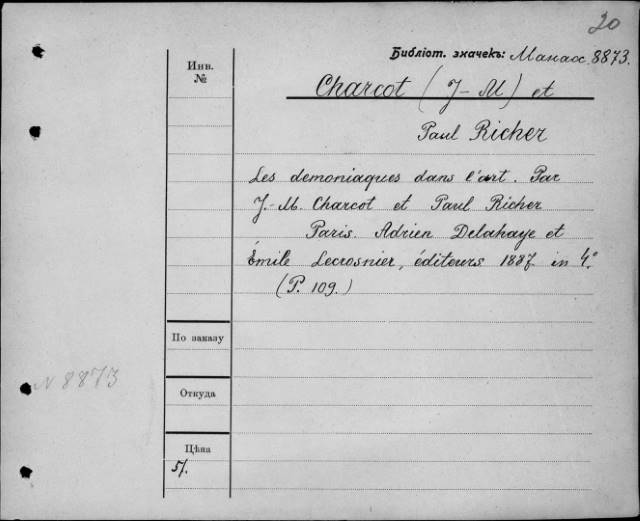 20
Библіот. значекъ: Манасс 8873.
Инв.
№
Charcot (J-M) et
Paul Richer
Les demoniaques dans l'art. Par
J.-M. Charcot et Paul Richer
Paris. Adrien Delahaye et
Émile Lecrosnier, éditeurs 1887 in 4.°
(P. 109.)
По заказу
N 8873
Откуда
Цѣна
5/.